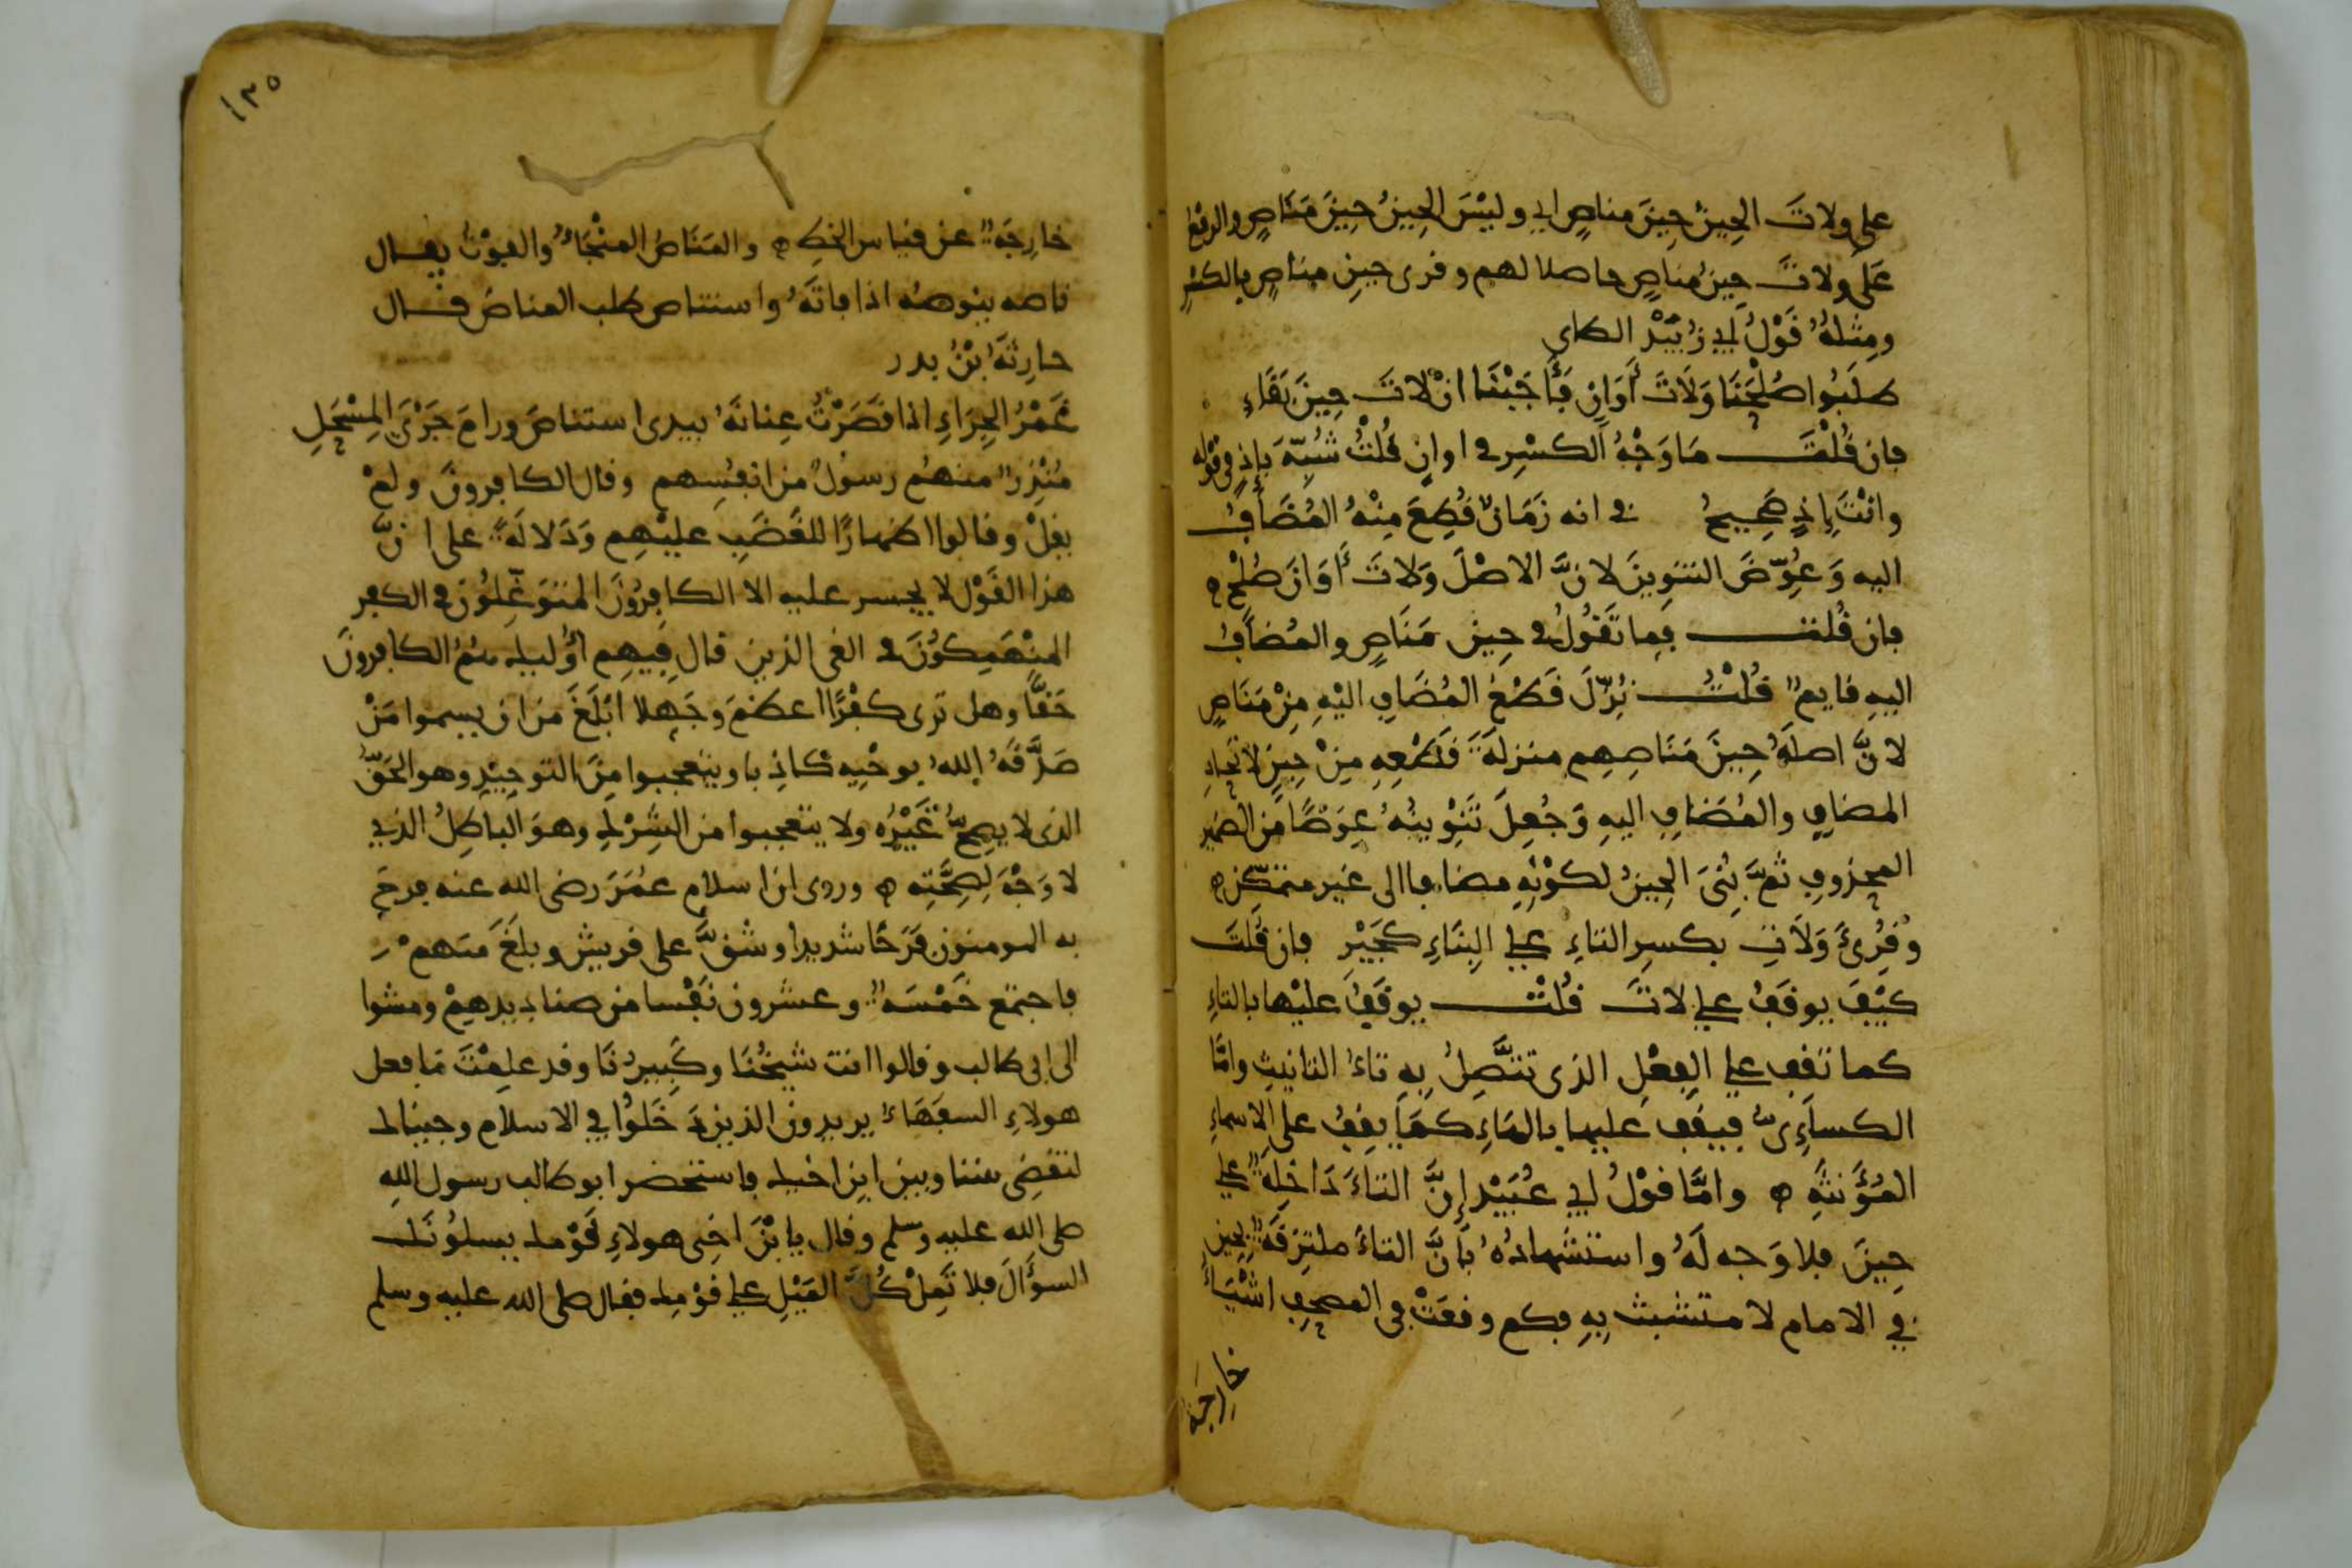 على ولات الحِينُ حِينَ مناصٍ اي وليْسَ الحِينُ حِينَ مَنَاصٍ والرفع
عَلى ولاتَ حِينُ مناصٍ حاصلا لهم وقرى حينِ مناصٍ بالكسْرِ
ومِثلهُ قَوْلُ ابي زُبَيْد الطاى
طلَبُوا صُلْحَنَا وَلَاتَ أَوَانٍ فَأَجَبْنَا انْ لاتَ حِينَ بَقَاءِ
فان قُلْتَ مَا وَجْهُ الكسْرِ في اوانٍ قُلْتُ شُبِّهَ بإذٍ في قوله
وانْتَ إِذٍ صَحِيحُ في انه زَمَانٌ قُطِعَ مِنْهُ المُضَافُ
اليه وَعُوِّضَ التنوينَ لانَّ الاصْلَ وَلاتَ أَوَانَ صُلْحٍ ه
فان قُلت فما تَقُولُ في حِينِ مَنَاصٍ والمُضافُ
اليهِ قايمٌ قُلْتُ نُزِّلَ قَطْعُ المُضَافِ اليْهِ مِنْ مَنَاصٍ
لانَّ اصلَهُ حِينَ مَنَاصِهِم منزلَةَ قَطْعِهِ مِنْ حِينٍ لاتّحادِ
المضافِ والمُضَافِ اليهِ وَجُعِلَ تَنْوِينُهُ عِوَضًا من الضمير
المحذوفِ ثمَّ بُنىَ الحِينُ لكوْنِهِ مضافا الى غيرِ متمكّنٍ ه
وقُرِئَ وَلَاتِ بكسرِ التاءِ على البِنَاءِ كجَيْرِ فان قُلتَ
كيْفَ يوقَفُ على لاتَ قُلْتُ يوقَفُ عليْها بالتاءِ
كما تقف على الفِعْلِ الذى تتَّصِلُ بِهِ تاءُ التانيث وامَّا
الكساءِىُّ فيقف عليها بالهَاءِ كمَا يقِفُ على الاسماءِ
المُؤَنثَّةِ ه وامَّا قوْلُ ابي عُبَيْد إنَّ التاءَ دَاخِلَةٌ على
حِينَ فلا وَجه لَهُ واستشهادُهُ بأَنَّ التاءَ ملتزِقَةٌ بحين
في الامام لا متشبث بِهِ فكم وقعَتْ فى المصحف اشْيَاءُ
خارِجَة
١٣٥
خارِجَةٌ عن قياس الخطِ ه والمَنَاصُ المنْجَاءُ والفَوْتُ يقال
ناصه ينوصُه اذا فاتَهُ واستناص طلب المناصَ قال
حارِثَةُ بْنُ بدر
غَمْرُ الجِرَاءِ اذا قَصَرْتُ عِنانَهُ بيدى استناصَ ورامَ جَرْىَ المِسْحَلِ
مُنْذِرٌ منهُم رسولٌ من انفُسِهم وقال الكافرونَ ولمْ
يقلْ وقالوا اظهارًا للغَضَبِ عليْهِم وَدَلالَةً على انَّ
هذا القَوْل لا يجسر عليه الا الكافِرُونَ المتوَغِّلُونَ في الكفر
المنْهَمِكُونَ في الغى الذين قال فِيهِم أُوْليك هُمُ الكافِرُونَ
حَقًّا وهل ترى كفْرًا اعظمَ وجَهلا ابْلَغَ من ان يسموا مَنْ
صَدَّقَهُ اللهُ بوحْيِه كاذبا ويتعجبوا مِنَ التوحِيْدِ وهو الحَقُّ
الذى لا يصِحُّ غَيْرُه ولا يتعجبوا من الشِرْكِ وهوَ الباطِلُ الذى
لا وَجْهَ لِصِحَّتِهِ ه وروى ان اسلامَ عُمَرَ رضى الله عنه فرحَ
به المومنون فَرَحًا شديدا وشقَّ على قريش وبلغَ منهمْ
فاجتمع خَمْسَةٌ وعشرون نَفْسا من صناديدهِمْ ومشوا
الى ابى طالب وقالوا انت شيْخُنَا وكَبِيرُنَا وقد علِمْتَ مَا فعل
هولاءِ السفَهَاءُ يريدونَ الذينَ دَخَلُوا في الاسلام وجيناك
لتقضِىَ بيننا وبين ابن اخيك فاستحضر ابو طالب رسول اللهِ
صلى الله عليه وسلم وقال يا بْنَ اخِى هولاءِ قَوْمك يسلُونَك
السؤَالَ فلا تَمِلْ كُلَّ المَيْلِ على قوْمِك فقال صلى الله عليه وسلم